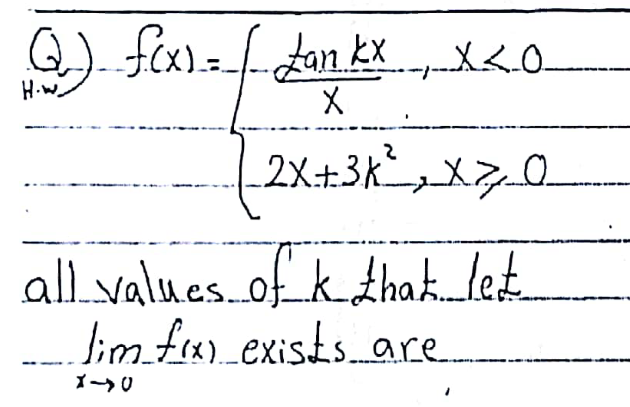 Q) f(x) = { tan kx / x , x < 0
H.w
2x + 3k² , x ≥ 0
all values of k that let
lim f(x) exists are
x→0